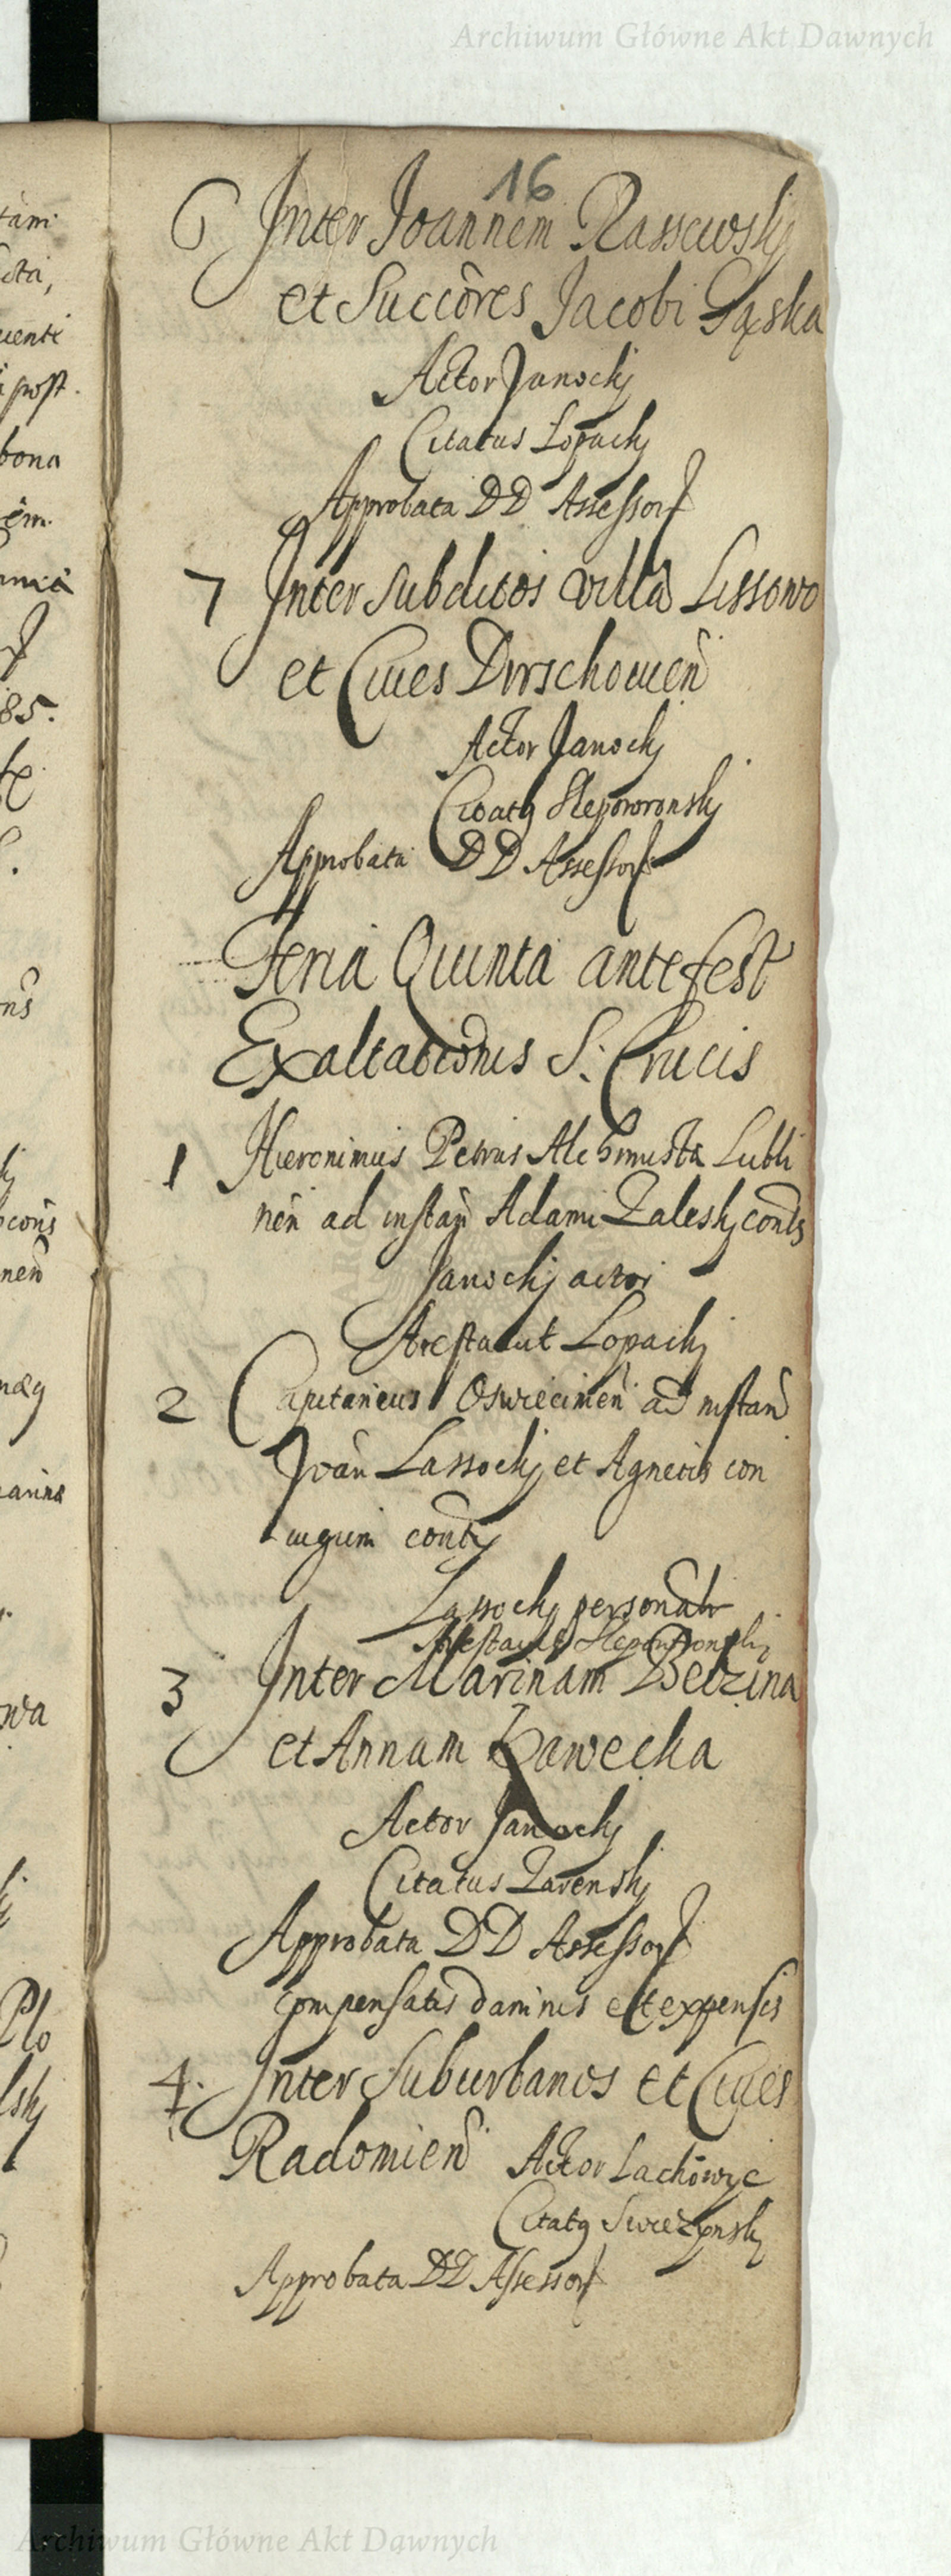 Archiwum Główne Akt Dawnych
16
6 Inter Joannem Rassewskj
et Succores Jacobi Gąska
Actor Janockj
Citatus Lopackj
Approbata DD Assessor
7 Inter subditos villa Lissowo
et Ciues Dirschouien
Actor Janockj
Citatq Slepowronskj
Approbata DD Assessor
Feria Quinta ante fest
Exaltationis S. Crucis
1 Hieronimus Petrus Alchimista Lubli
nen ad instan Adami Zaleskj
Janockj actor
Arestauit Lopackj
2 Capitaneus Oswiecimen ad instan
Joan Lassockj et Agnetis con
iugum
Lassockj personalr
Arestauit Slepowronskj
3 Inter Marinam
et Annam Zawecka
Actor Janockj
Citatus Zarenskj
Approbata DD Assessor
compensatis damnis et expensis
4. Inter Suburbanos et Ciues
Radomien Actor Lachowyc
Citatq Swiezynskj
Approbata DD Assessor
tam
cta,
uenti
post.
bona
em.
85.
ns
cons
nen
naeq
wa
Plo
lskj
Archiwum Główne Akt Dawnych